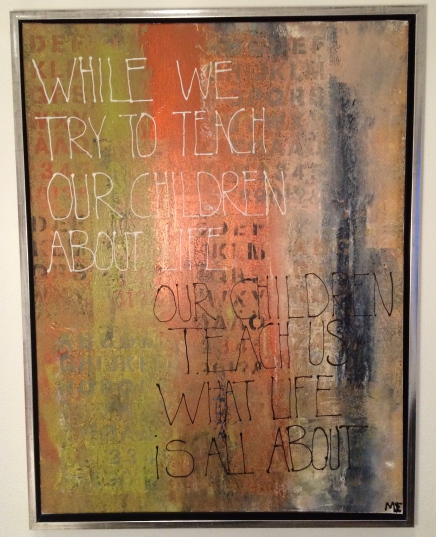 WHILE WE
TRY TO TEACH
OUR CHILDREN
ABOUT LIFE
OUR CHILDREN
TEACH US
WHAT LIFE
iS ALL ABOUT
ME